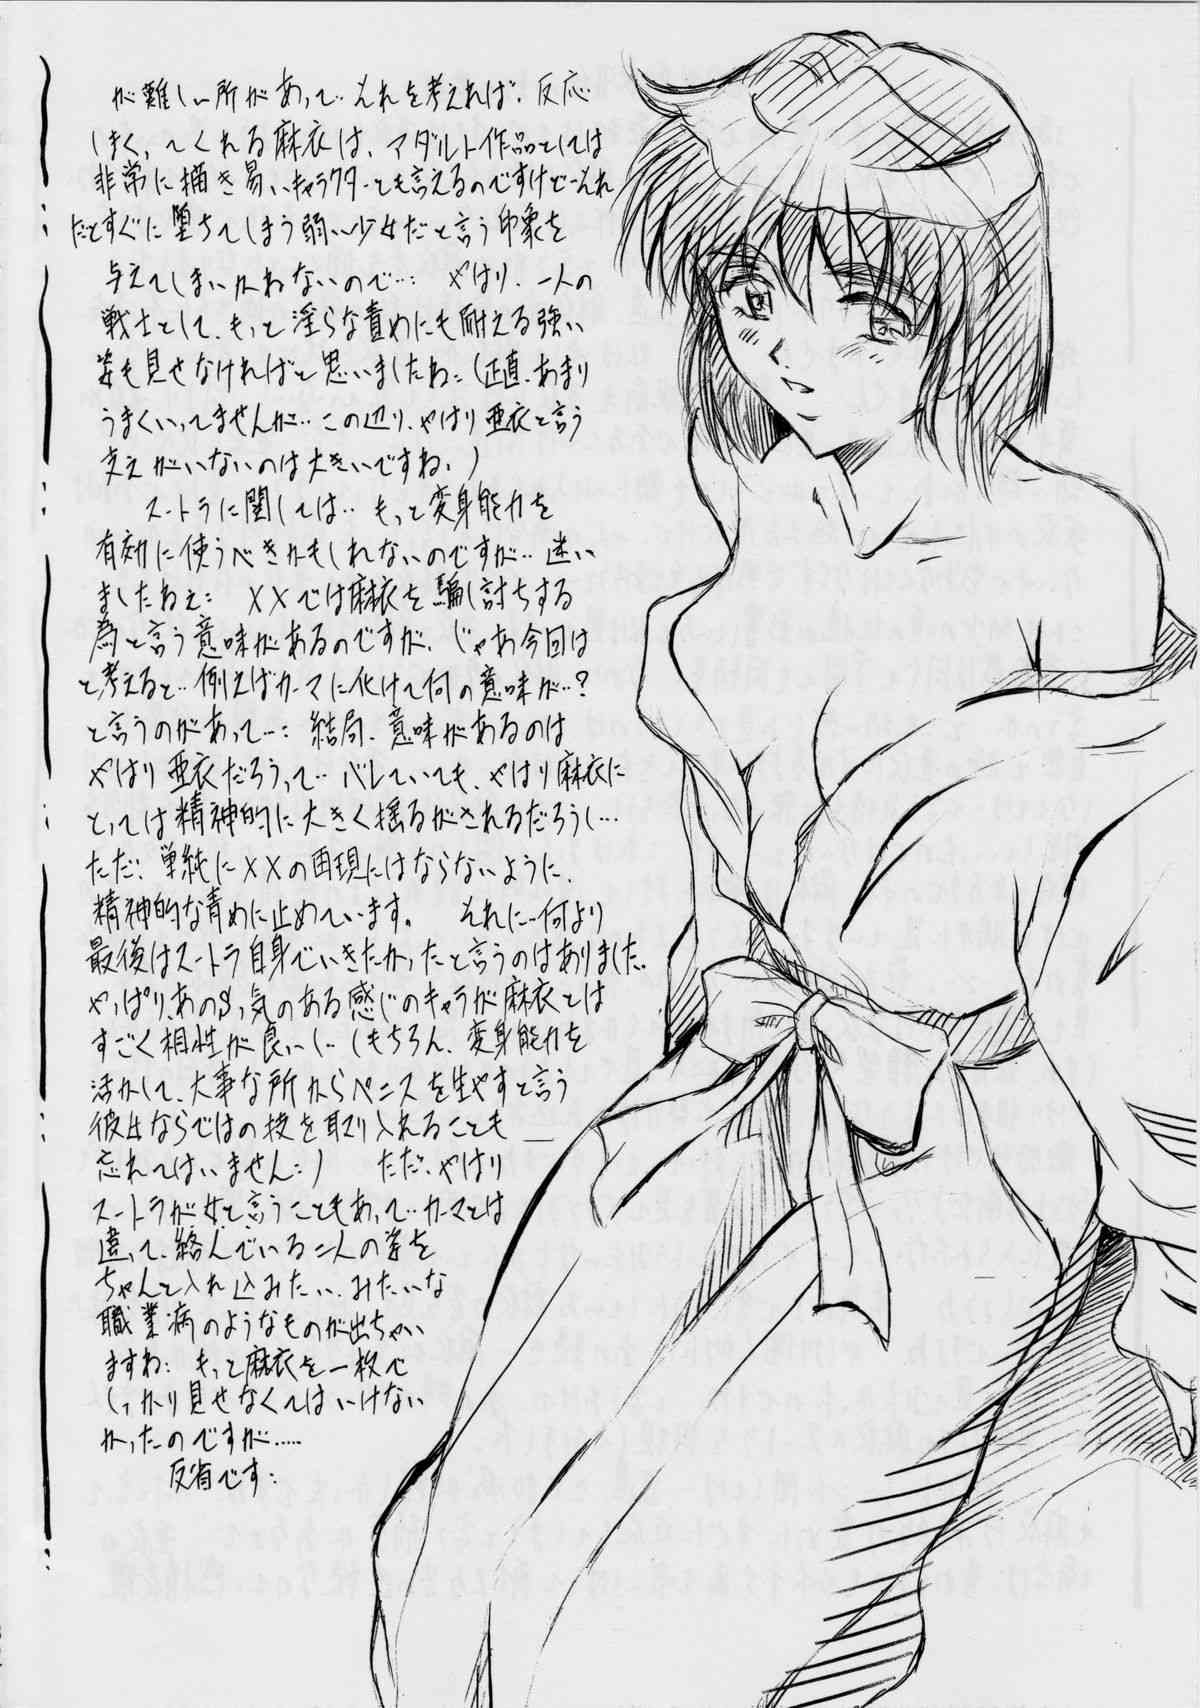 が難しい所があって‥それを考えれば、反応
しまくってくれる麻衣は、アダルト作品としては
非常に描き易いキャラクターとも言えるのですけど…それ
だとすぐに堕ちてしまう弱い少女だと言う印象を
与えてしまいかねないので…: やはり、一人の
戦士として、もっと淫らな責めにも耐える強い
姿も見せなければと思いましたね: (正直、あまり
うまくいってませんが‥この辺り、やはり亜衣と言う
支えがいないのは大きいですね、)
スートラに関しては‥もっと変身能力を
有効に使うべきかもしれないのですが‥迷い
ましたねぇ: XXでは麻衣を騙し討ちする
為と言う意味があるのですが、じゃあ今回は
と考えると‥例えばカーマに化けて何の意味が‥?
と言うのがあって…: 結局、意味があるのは
やはり亜衣だろうって‥バレていても、やはり麻衣に
とっては精神的に大きく揺るがされるだろうし…
ただ: 単純にXXの再現にはならないように、
精神的な責めに止めています。 それに…何より
最後はスートラ自身でいきたかったと言うのはありました.
やっぱり、あのSっ気のある感じのキャラが麻衣とは
すごく相性が良いし‥(もちろん、変身能力を
活かして、大事な所からペニスを生やすと言う
彼女ならではの技を取り入れることも
忘れてはいません:) ただ、やはり
スートラが女と言うこともあって‥カーマとは
違って、絡んでいる二人の姿を
ちゃんと入れ込みたい、みたいな
職業病のようなものが出ちゃい
ますね: もっと麻衣を一枚で
しっかり見せなくてはいけない
かったのですが.....
反省です: